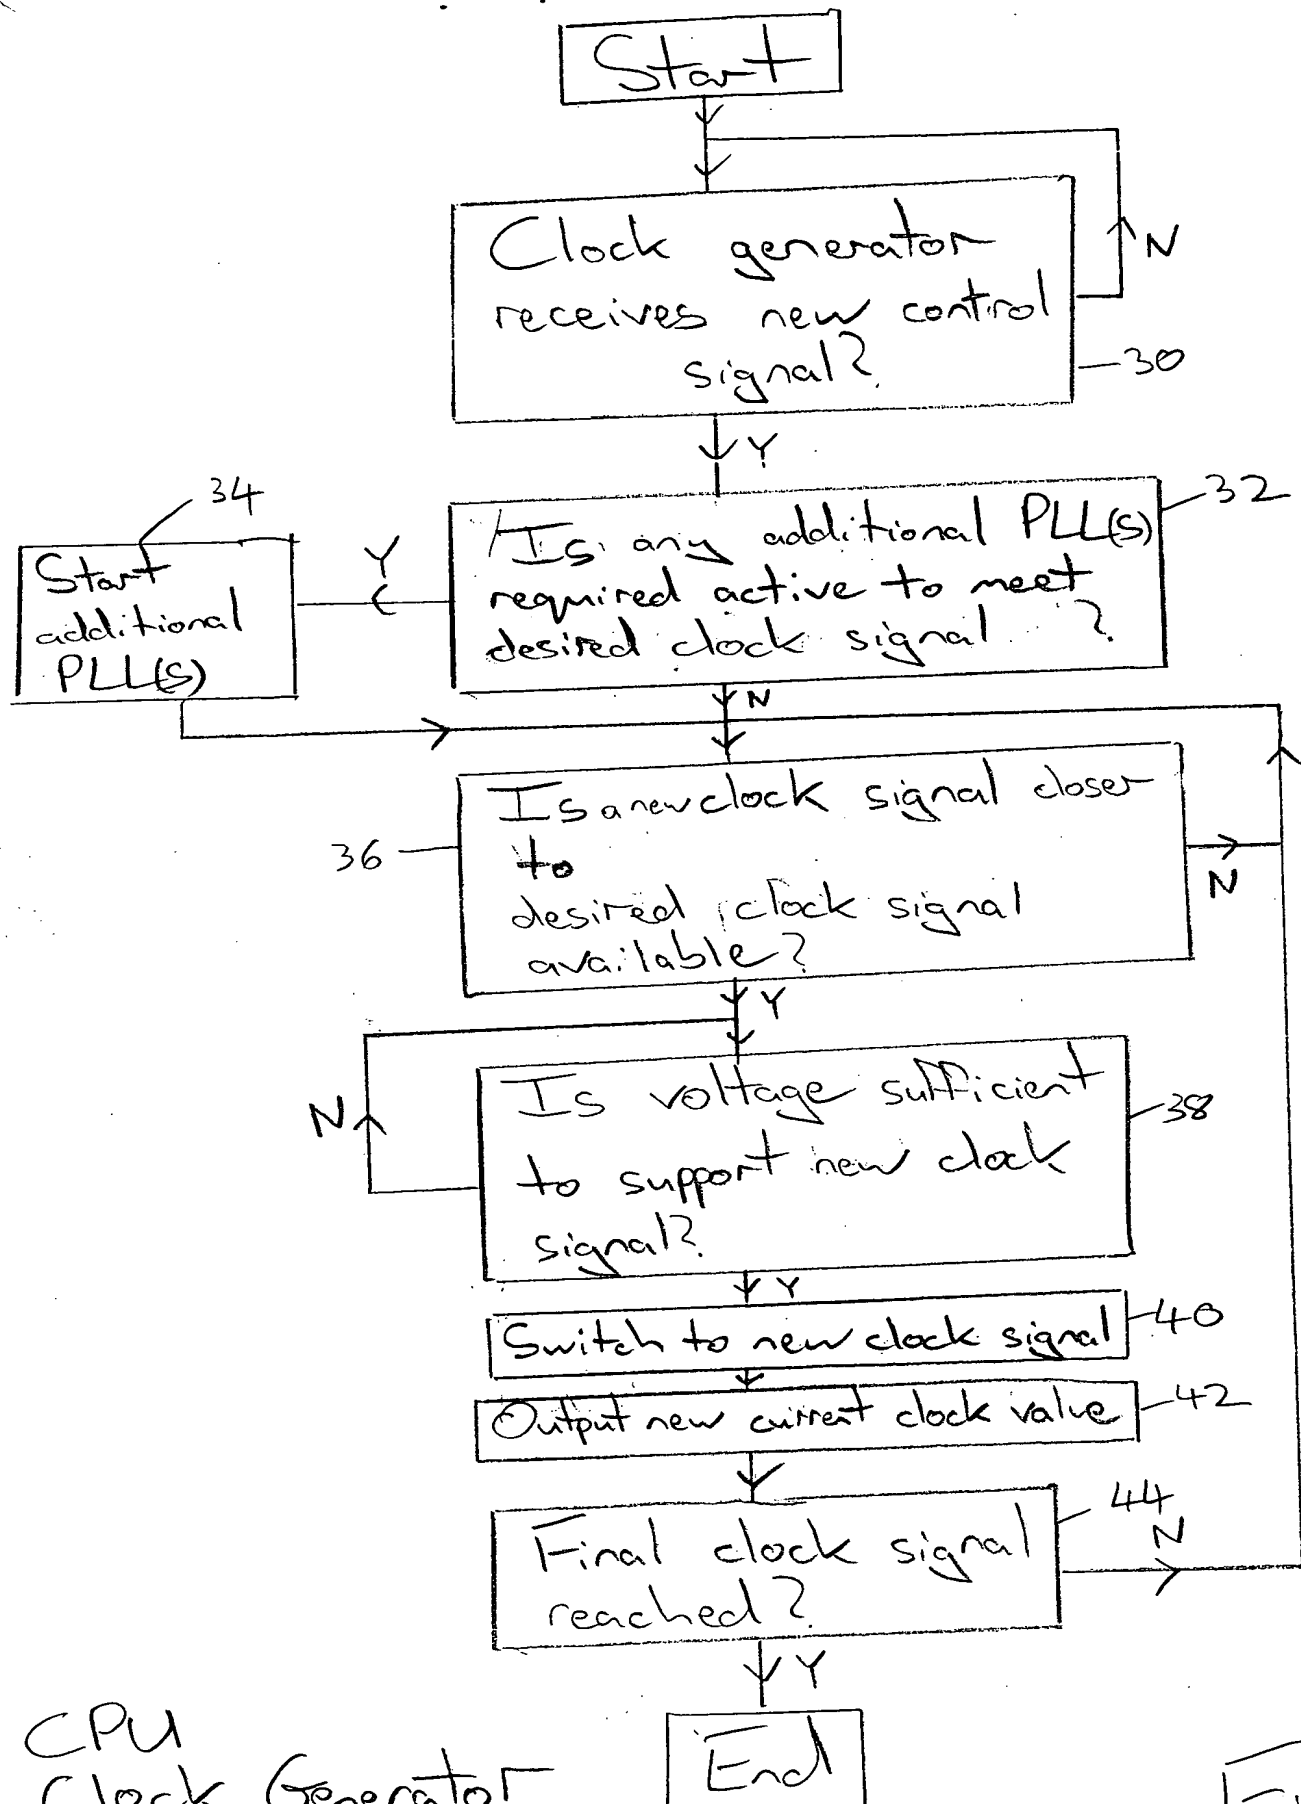 Start
Clock generator
receives new control
signal?
N
30
Y
34
32
Is any additional PLL(s)
required active to meet
desired clock signal ?
Y
Start
additional
PLL(s)
N
Is a new clock signal closer
to
desired clock signal
available?
36
N
Y
Is voltage sufficient
to support new clock
signal?
N
38
Y
Switch to new clock signal
40
Output new current clock value
42
Final clock signal
reached?
44
N
Y
End
CPU
Clock Generator